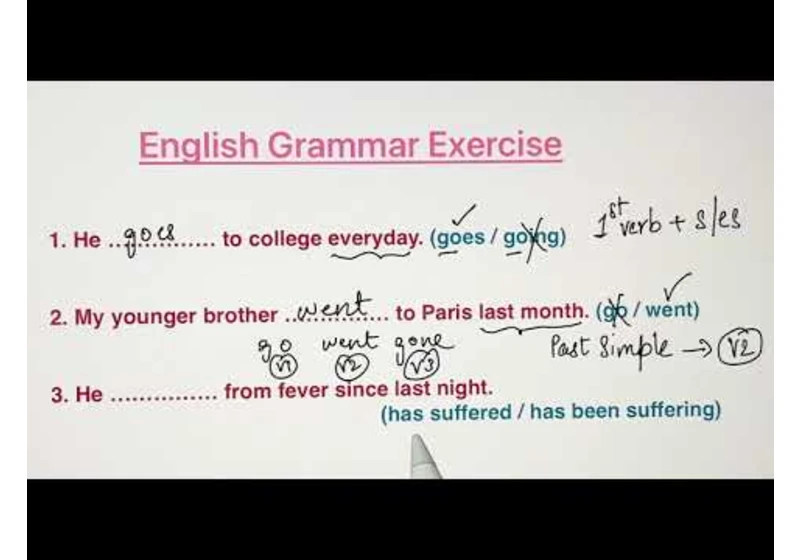 English Grammar Exercise
1. He ...goes............ to college everyday. (goes / going) 1st verb + s/es
2. My younger brother ..went............ to Paris last month. (go / went)
go went gone Past Simple → V2
V1 V2 V3
3. He ................ from fever since last night.
(has suffered / has been suffering)